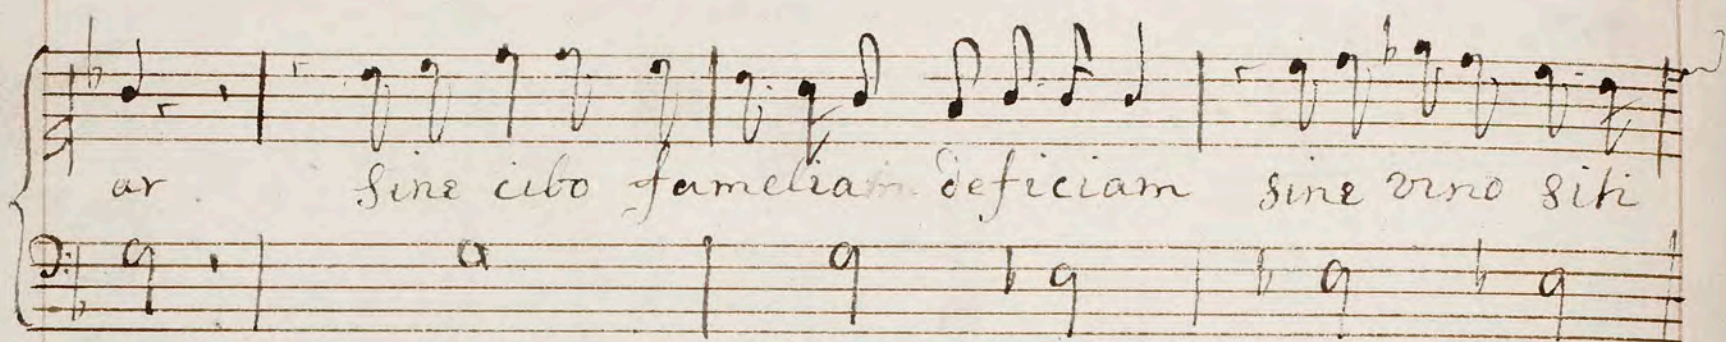 ar sine cibo fameliam deficiam sine vino siti